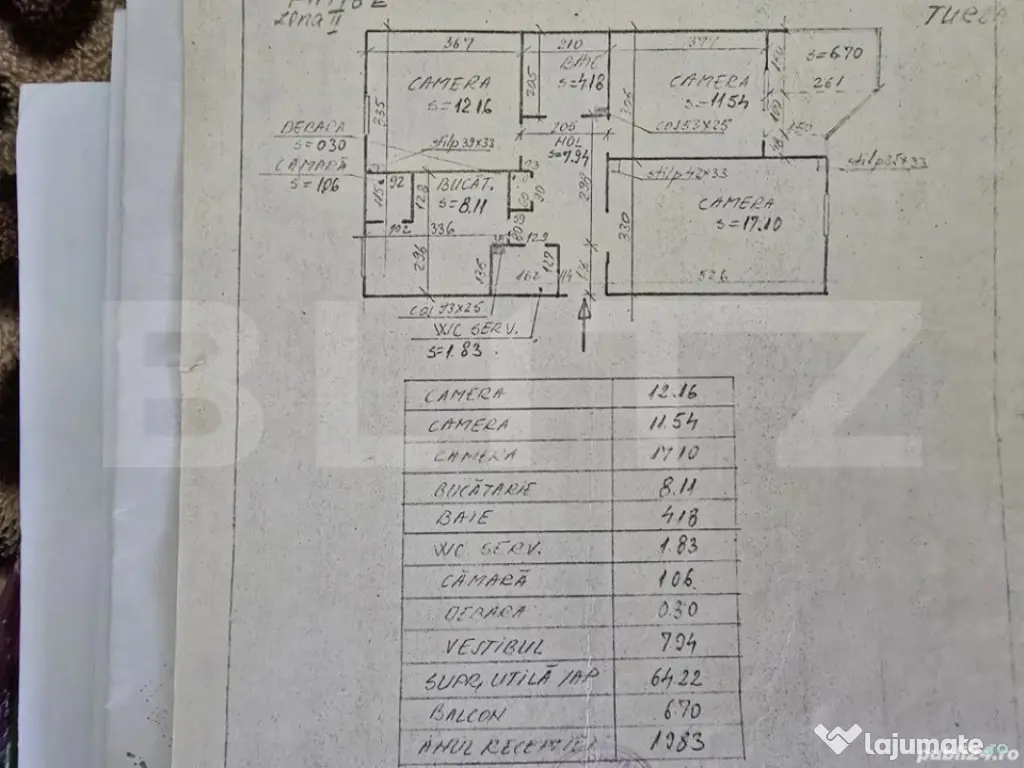 Zona II
367
210
377
BAIE
S=4.18
205
S=6.70
261
CAMERA
S=12.16
335
CAMERA
S=11.54
DEBARA
S=0.30
stilp 39x33
205
HOL
S=7.94
cos 53x25
CĂMARĂ
S=1.06
stilp 42x33
stilp 35x33
92
BUCĂT.
S=8.11
128
115
CAMERA
S=17.10
330
298
102
336
129
296
135
162
127
114
526
cos 93x25
WC SERV.
S=1.83
BLITZ
CAMERA 12.16
CAMERA 11.54
CAMERA 17.10
BUCĂTARIE 8.11
BAIE 4.18
WC SERV. 1.83
CĂMARĂ 1.06
DEBARA 0.30
VESTIBUL 7.94
SUPR. UTILĂ/AP 64.22
BALCON 6.70
ANUL RECEPȚIEI 1983
lajumate.ro
publi24.ro